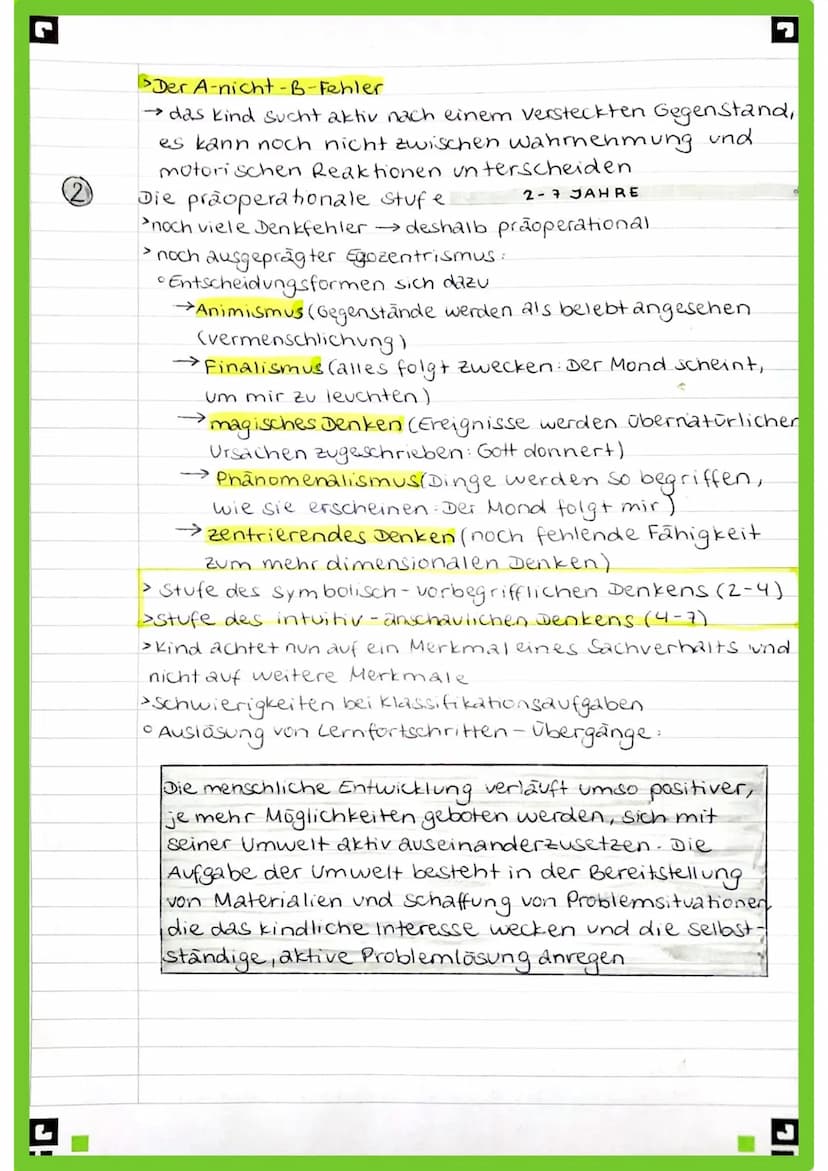 >Der A-nicht-B-Fehler
→ das Kind sucht aktiv nach einem versteckten Gegenstand,
es kann noch nicht zwischen Wahrnehmung und
motorischen Reaktionen unterscheiden
② Die präoperationale Stufe 2-7 JAHRE
>noch viele Denkfehler → deshalb präoperational
> noch ausgeprägter Egozentrismus:
° Entscheidungsformen sich dazu
→ Animismus (Gegenstände werden als belebt angesehen
(Vermenschlichung)
→ Finalismus (alles folgt Zwecken: Der Mond scheint,
um mir zu leuchten)
→ magisches Denken (Ereignisse werden übernatürlicher
Ursachen zugeschrieben: Gott donnert)
→ Phänomenalismus (Dinge werden so begriffen,
wie sie erscheinen: Der Mond folgt mir)
→ zentrierendes Denken (noch fehlende Fähigkeit
zum mehrdimensionalen Denken)
> Stufe des symbolisch-vorbegrifflichen Denkens (2-4)
>Stufe des intuitiv-anschaulichen Denkens (4-7)
>Kind achtet nun auf ein Merkmal eines Sachverhalts und
nicht auf weitere Merkmale
>Schwierigkeiten bei Klassifikationsaufgaben
° Auslösung von Lernfortschritten - Übergänge:
Die menschliche Entwicklung verläuft umso positiver,
je mehr Möglichkeiten geboten werden, sich mit
seiner Umwelt aktiv auseinanderzusetzen. Die
Aufgabe der Umwelt besteht in der Bereitstellung
von Materialien und Schaffung von Problemsituationen,
die das kindliche Interesse wecken und die selbst-
ständige, aktive Problemlösung anregen